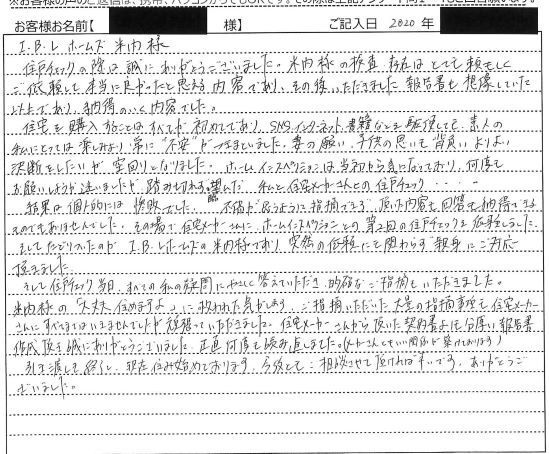 お客様お名前【　様】　ご記入日 2020 年
I.B.Lホームズ 米内様
住戸チェックの際は誠にありがとうございました。米内様の検査、存在はとても頼もしく
ご依頼して本当に良かったと思える内容であり、その後いただきました報告書も想像していた
以上であり、納得のいく内容でした。
住宅を購入することはすべてが初めてであり、SNS、インターネット、書籍などを駆使しても素人の
私にとっては楽しみより常に"不安"がつきまといました。妻の願い、子供の思いを背負い、よりよい
決断をしたいが空回りとなりました。ホームインスペクションは当初から気になっており、何度も
お願いしようか迷いましたが踏み切れず臨んだ、私と住宅メーカーさんとの住戸チェック・・・・
結果は個人的には惨敗でした。不備が思うように指摘できず、頂いた内容も回答も納得できる
ものでもありませんでした。その場で住宅メーカーさんにホームインスペクションとの第2回の住戸チェックを依頼しました。
そしてたどりついたのが I.B.Lホームズの米内様であり、突然の依頼にも関わらず親身にご対応
頂きました。
そして住戸チェック当日、すべての私の疑問にやさしく答えていただき、的確なご指摘もいただきました。
米内様の「大丈夫、住めますよ。」に救われた気がします。ご指摘いただいた大量の指摘事項も住宅メーカー
さんにすべてとはいきませんでしたが頑張っていただきました。住宅メーカーさんから頂いた契約書よりも分厚い報告書
作成頂き誠にありがとうございました。正直何度も読み直しました。(メーカーさんともいい関係が築けております)
引き渡しも終了し、現在住み始めております。今後もご相談させて頂ければ幸いです。ありがとうご
ざいました。